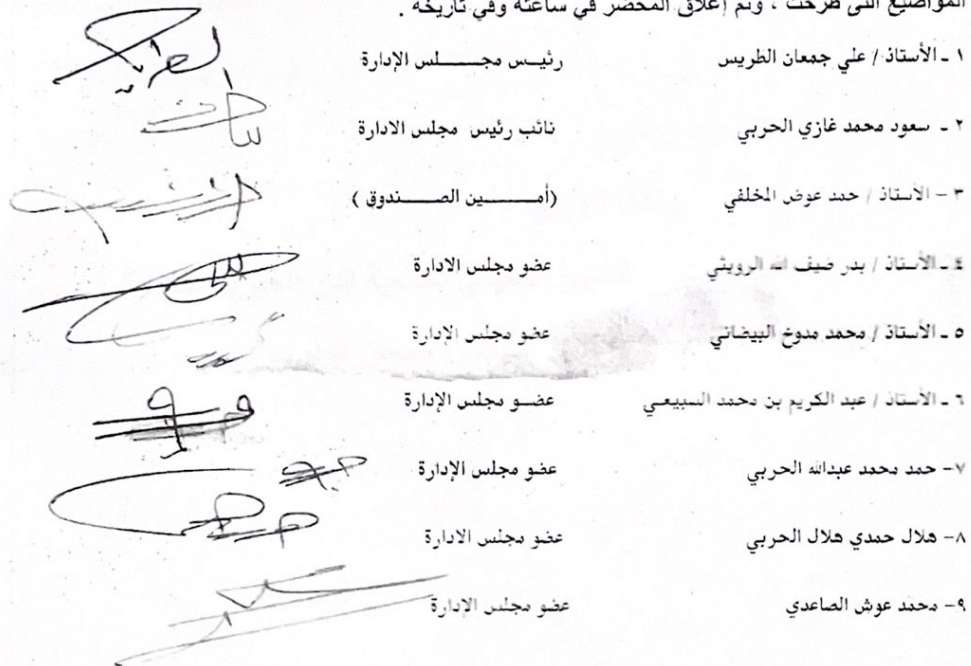 المواضيع التى طرحت ، وتم إغلاق المحضر في ساعته وفي تاريخه .
١ ـ الأستاذ / علي جمعان الطريس رئيس مجـــــلس الإدارة
٢ ـ سعود محمد غازي الحربي نائب رئيس مجلس الادارة
٣ - الأستاذ / حمد عوض المخلفي (أمـــــين الصـــــندوق )
٤ ـ الأستاذ / بدر ضيف الله الرويثي عضو مجلس الادارة
٥ ـ الأستاذ / محمد مدوخ البيضاني عضو مجلس الإدارة
٦ ـ الأستاذ / عبد الكريم بن محمد السبيعـي عضـو مجلس الإدارة
٧- حمد محمد عبدالله الحربي عضو مجلس الإدارة
٨- هلال حمدي هلال الحربي عضو مجلس الادارة
٩- محمد عوش الصاعدي عضو مجلس الإدارة